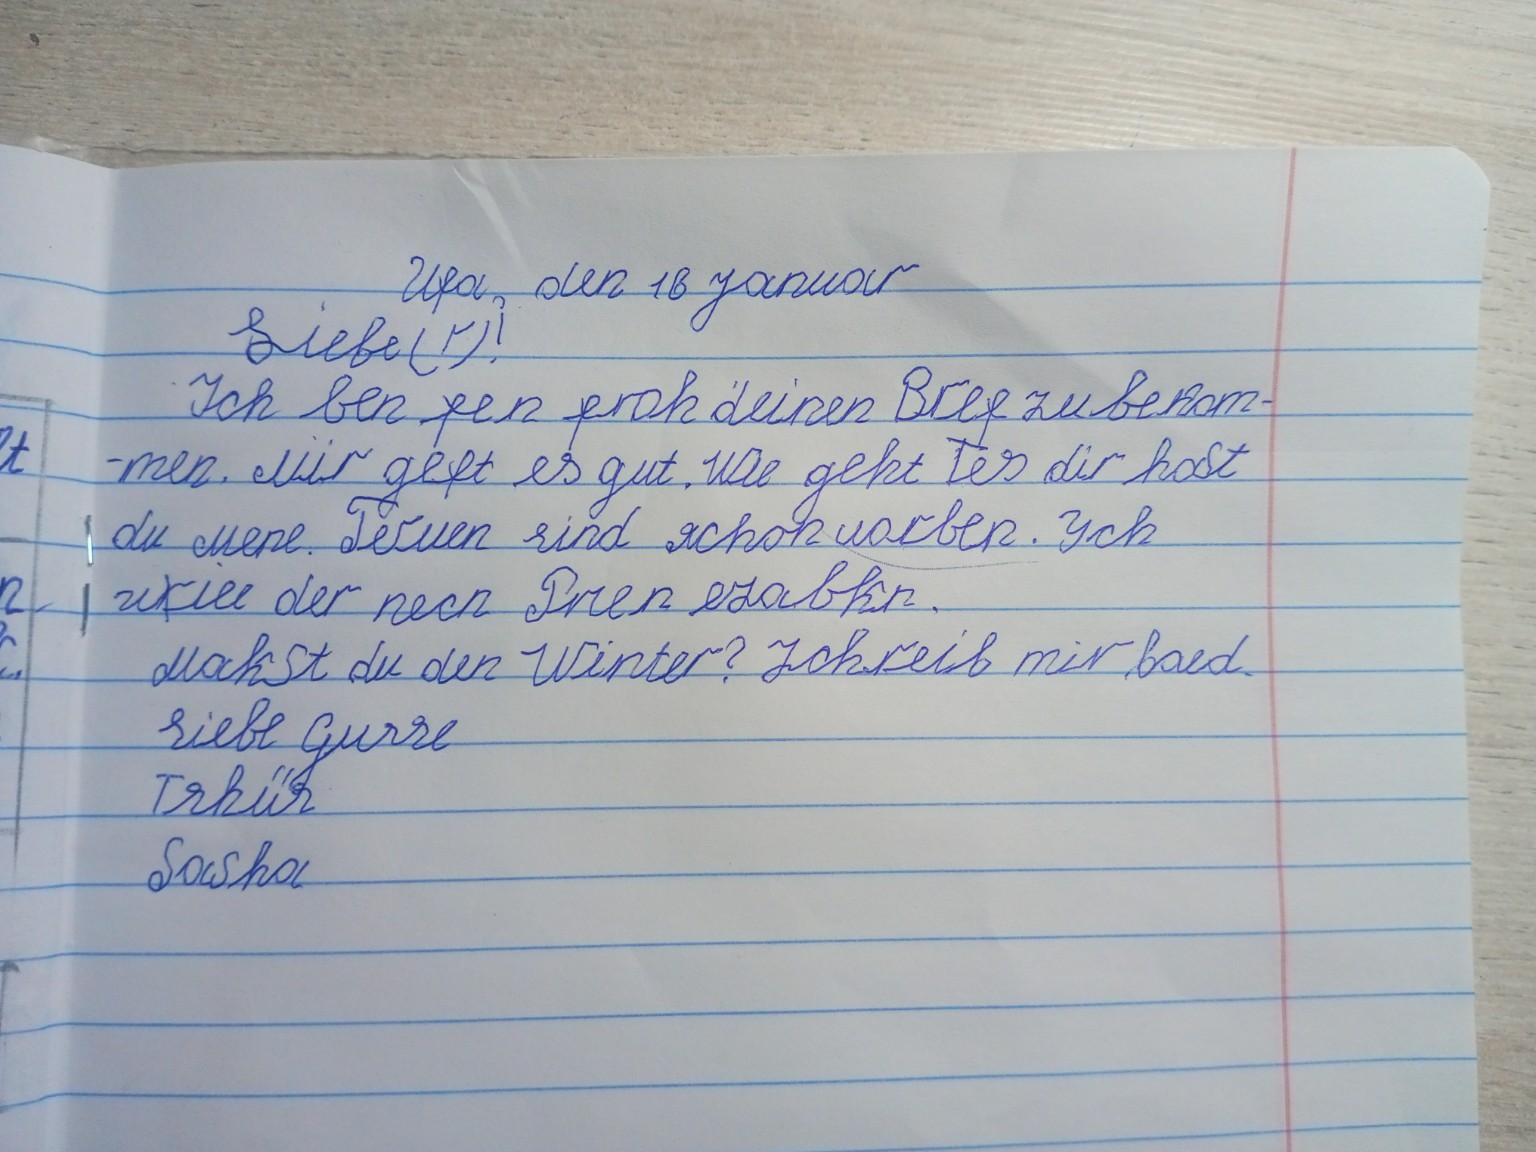 Ufa, den 16 Januar
Liebe(r)!
Ich ben fen froh deinen Bref zu bekom-
-men. Mir geft es gut. Wie geht Tes dir hast
du Mene. Feruen sind schon vorben. Ich
will der necn Prien ezabkn.
Mahst du den Winter? Schreib mir bald.
Liebe Gusse
Tshüs
Sasha